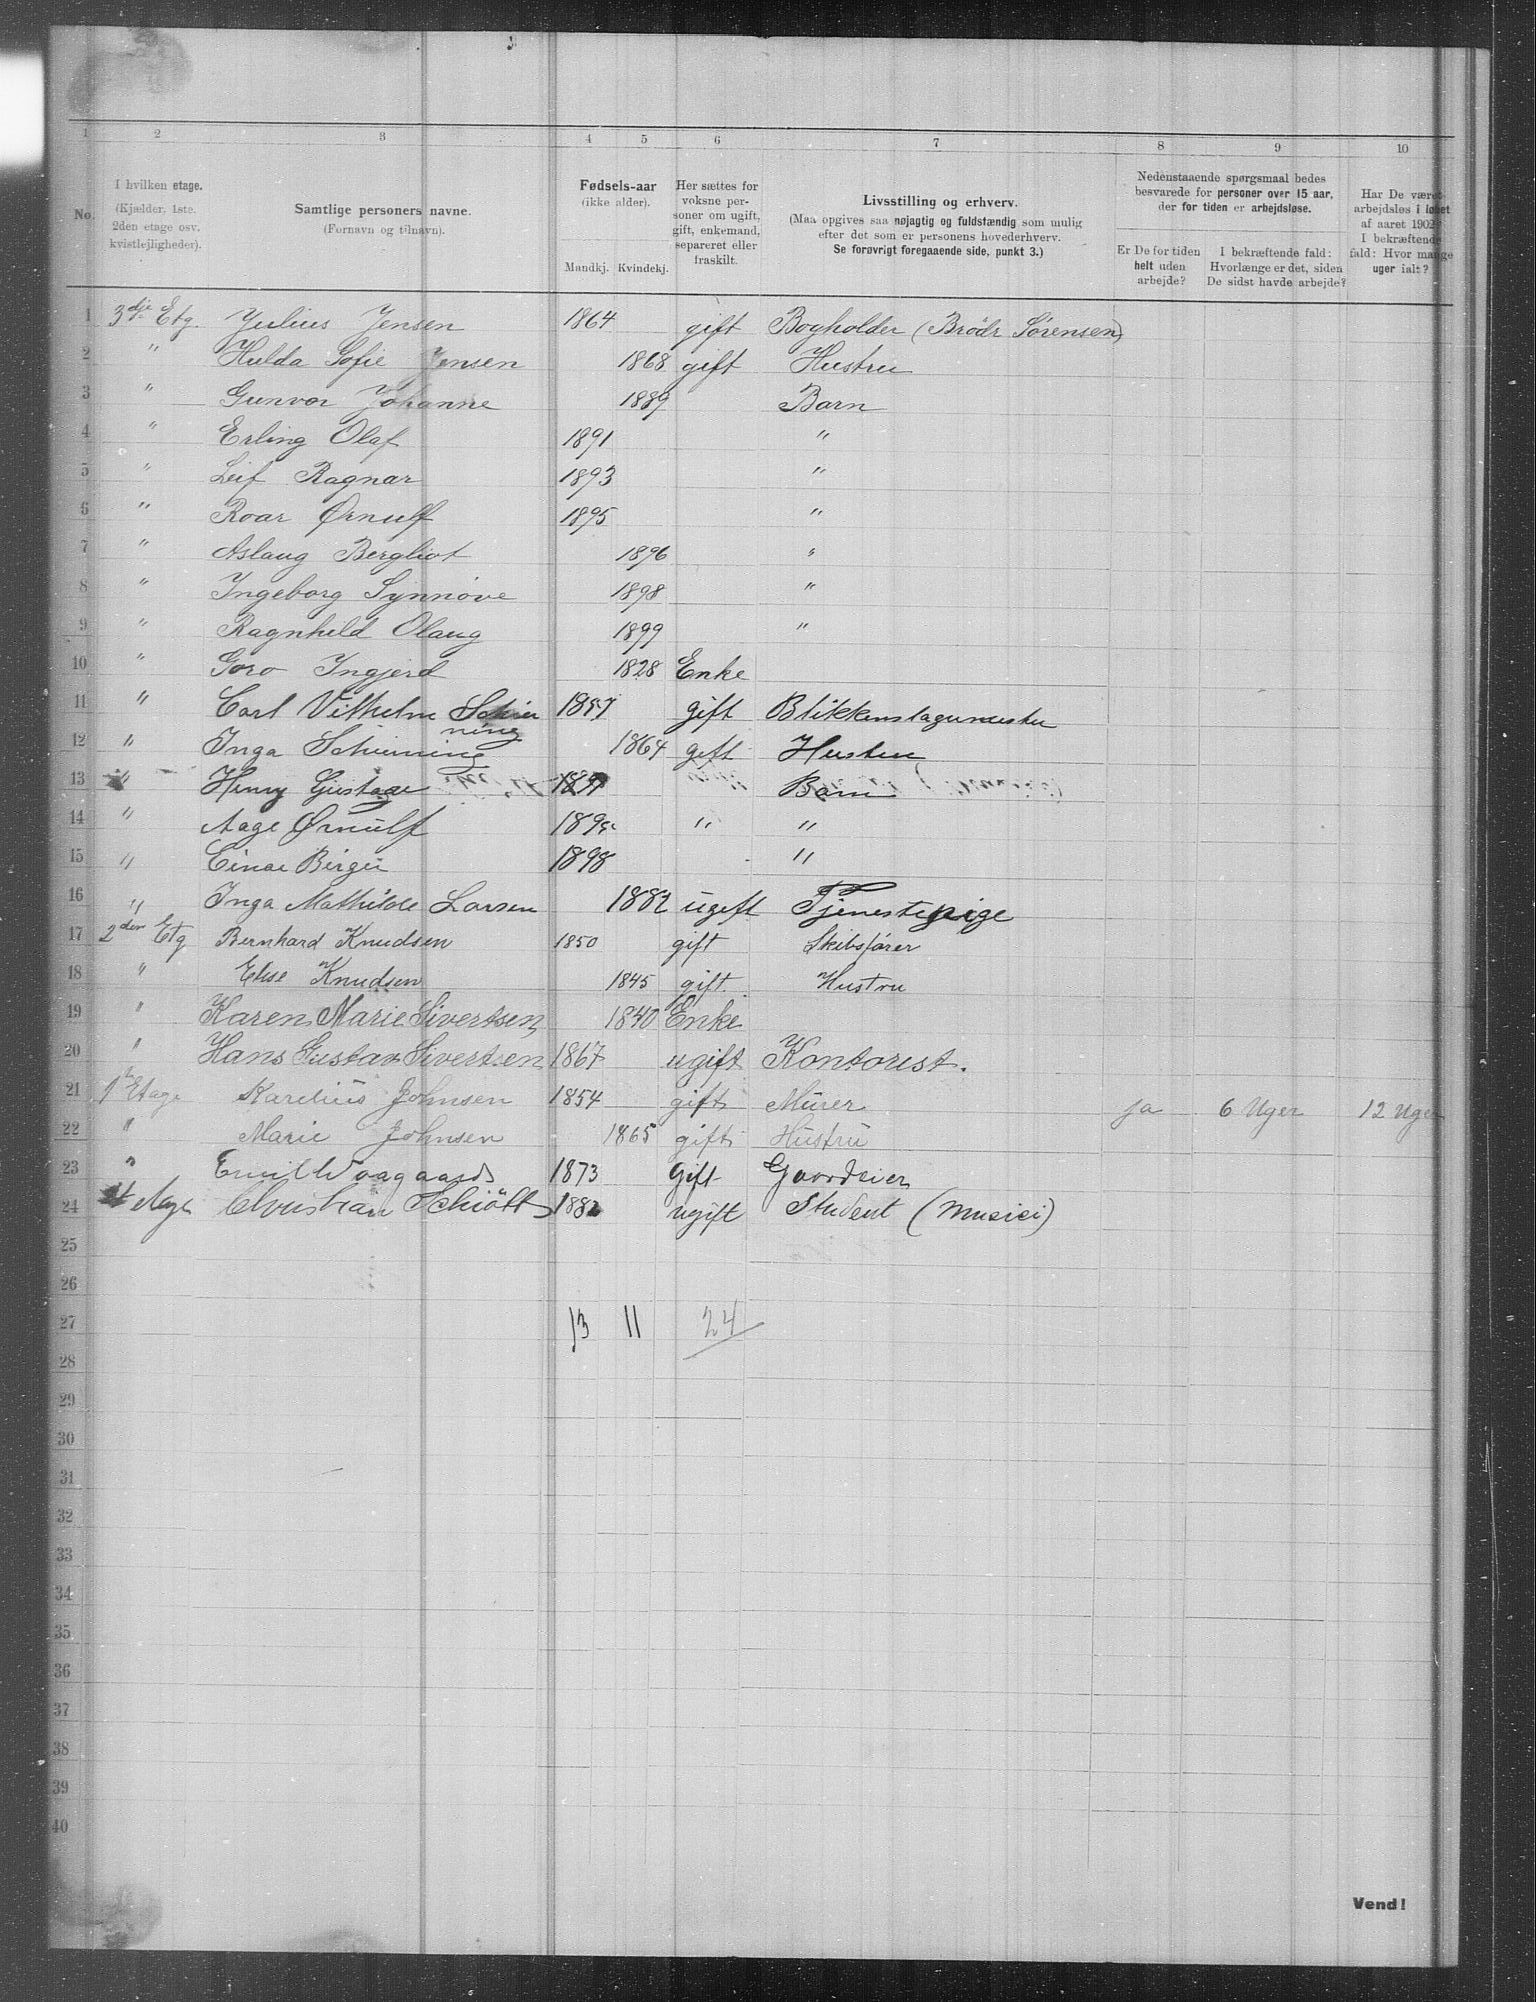 1 2 3 4 5 6 7 8 9 10
No.
I hvilken etage.
(Kjælder, 1ste.
2den etage osv.
kvistleiligheder).
Samtlige personers navne.
(Fornavn og tilnavn).
Fødsels-aar
(ikke alder).
Mandkj. Kvindekj.
Her sættes for
voksne per-
soner om ugift,
gift, enkemand,
separeret eller
fraskilt.
Livsstilling og erhverv.
(Maa opgives saa nøjagtig og fuldstændig som mulig
efter det som er personens hovederhverv.
Se forøvrigt foregaaende side, punkt 3.)
Nedenstaaende spørgsmaal bedes
besvarede for personer over 15 aar,
der for tiden er arbejdsløse.
Er De for tiden
helt uden
arbejde?
I bekræftende fald:
Hvorlænge er det, siden
De sidst havde arbejde?
Har De været
arbejdsløs i løbet
af aaret 1902?
I bekræftende
fald: Hvor mange
uger ialt?
1 3dje Etg. Julius Jensen 1864 gift Bogholder (Brødr Sørensen)
2 " Hulda Sofie Jensen 1868 gift Hustru
3 " Gunvor Johanne 1889 Barn
4 " Erling Olaf 1891 "
5 " Leif Ragnar 1893 "
6 " Roar Ørnulf 1895 "
7 " Aslaug Bergliot 1896 "
8 " Ingeborg Synnøve 1898 "
9 " Ragnhild Olaug 1899 "
10 " Goro Ingjerd 1828 Enke
11 " Carl Vilhelm Schier 1857 gift Blikkenslagermester
ning
12 " Inga Schierning 1864 gift Hustru
13 " Henry Gustav Barn
14 " Aage Ørnulf " "
15 " Einar Birger 1898 "
16 " Inga Mathilde Larsen 1882 ugift Tjenestepige
17 2den Etg Bernhard Knudsen 1850 gift Skibsfører
18 " Elise Knudsen 1845 gift. Hustru
19 " Karen Marie Sivertsen, 1840 Enke
20 " Hans Gustav Sivertsen 1867 ugift Kontorist.
21 1ste Etage Karelius Johnsen 1854 gift Murer ja 6 Uger 12 Uger
22 " Marie Johnsen 1865 gift Hustru
23 " Emil Waagaard 1873 Gift Gaardeier
24 Christian Schiött 1882 ugift Student (Musici)
25
26
27 13 11 24
28
29
30
31
32
33
34
35
36
37
38
39
40
Vend!